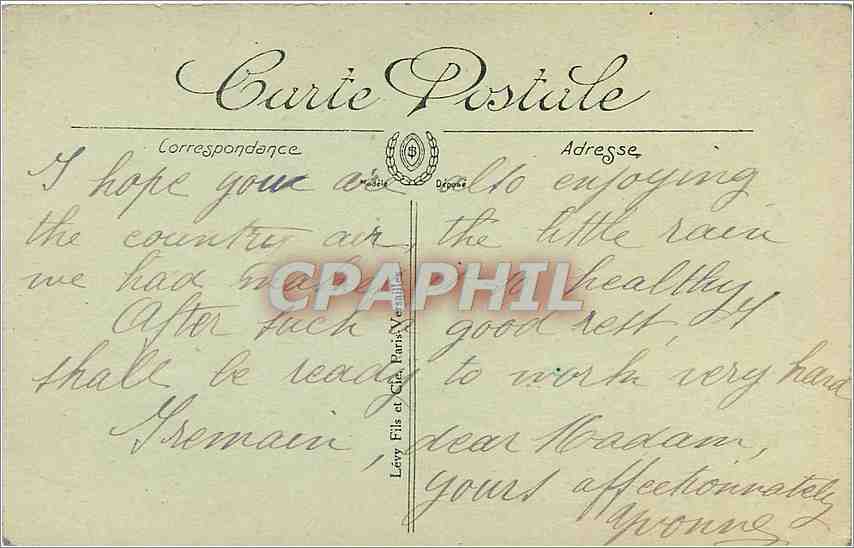 Carte Postale
Correspondance
Adresse
Modèle Déposé
I hope you are also enjoying
the country air, the little rain
we had makes it so healthy
After such a good rest, I
shall be ready to work very hard
I remain, dear Madam,
yours affectionnately
Yvonne
Lévy Fils et Cie, Paris-Versailles
CPAPHIL